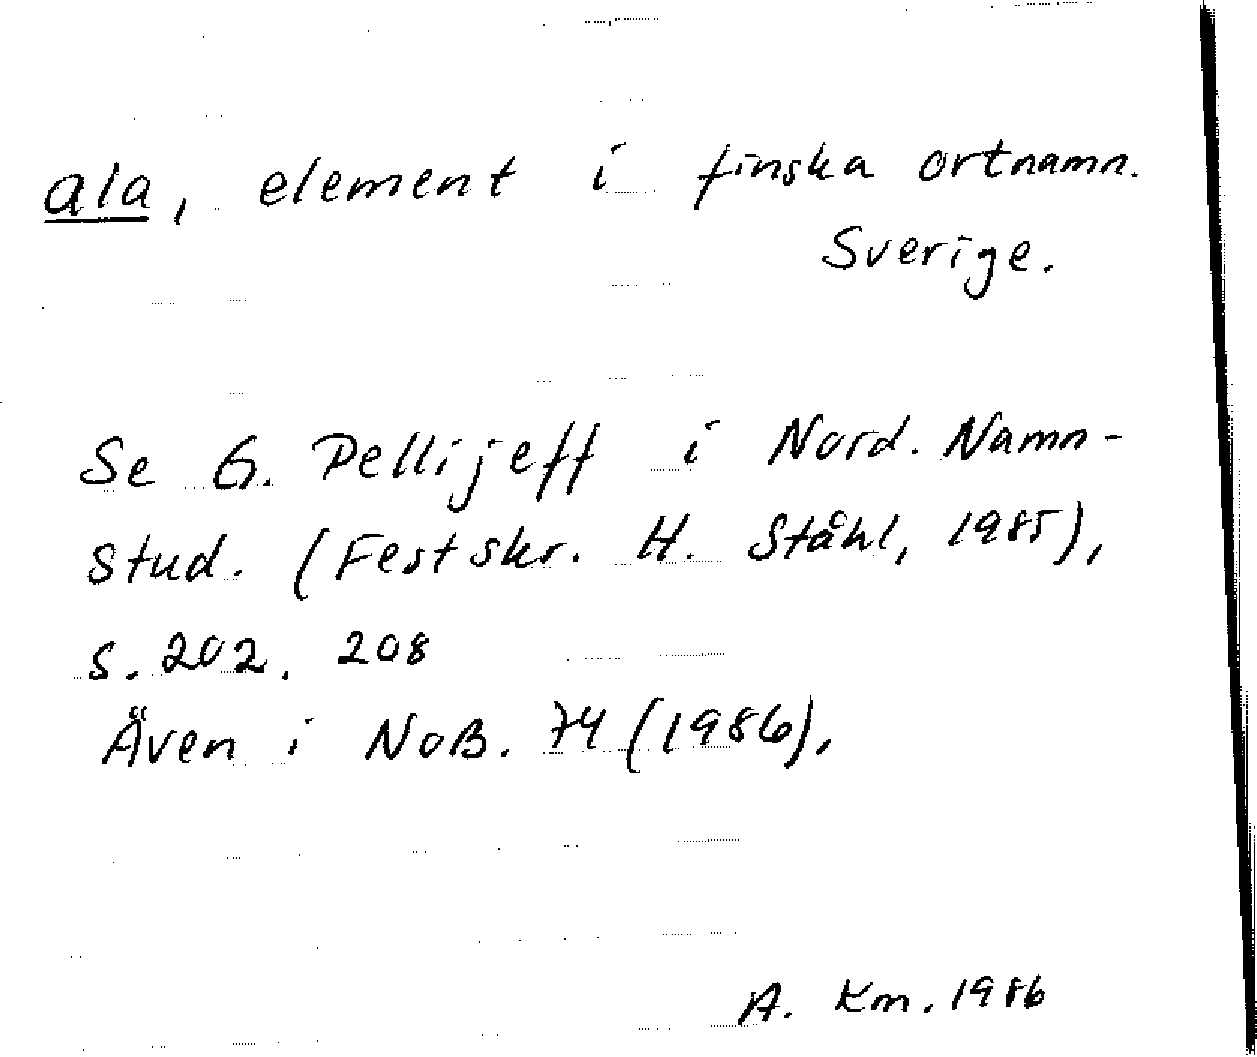 ala, element i finska ortnamn.
Sverige.
Se G. Pellijeff i Nord. Namn-
stud. (Festskr. H. Ståhl, 1985),
s. 202. 208
Även i NoB. 74 (1986),
A. Km. 1986